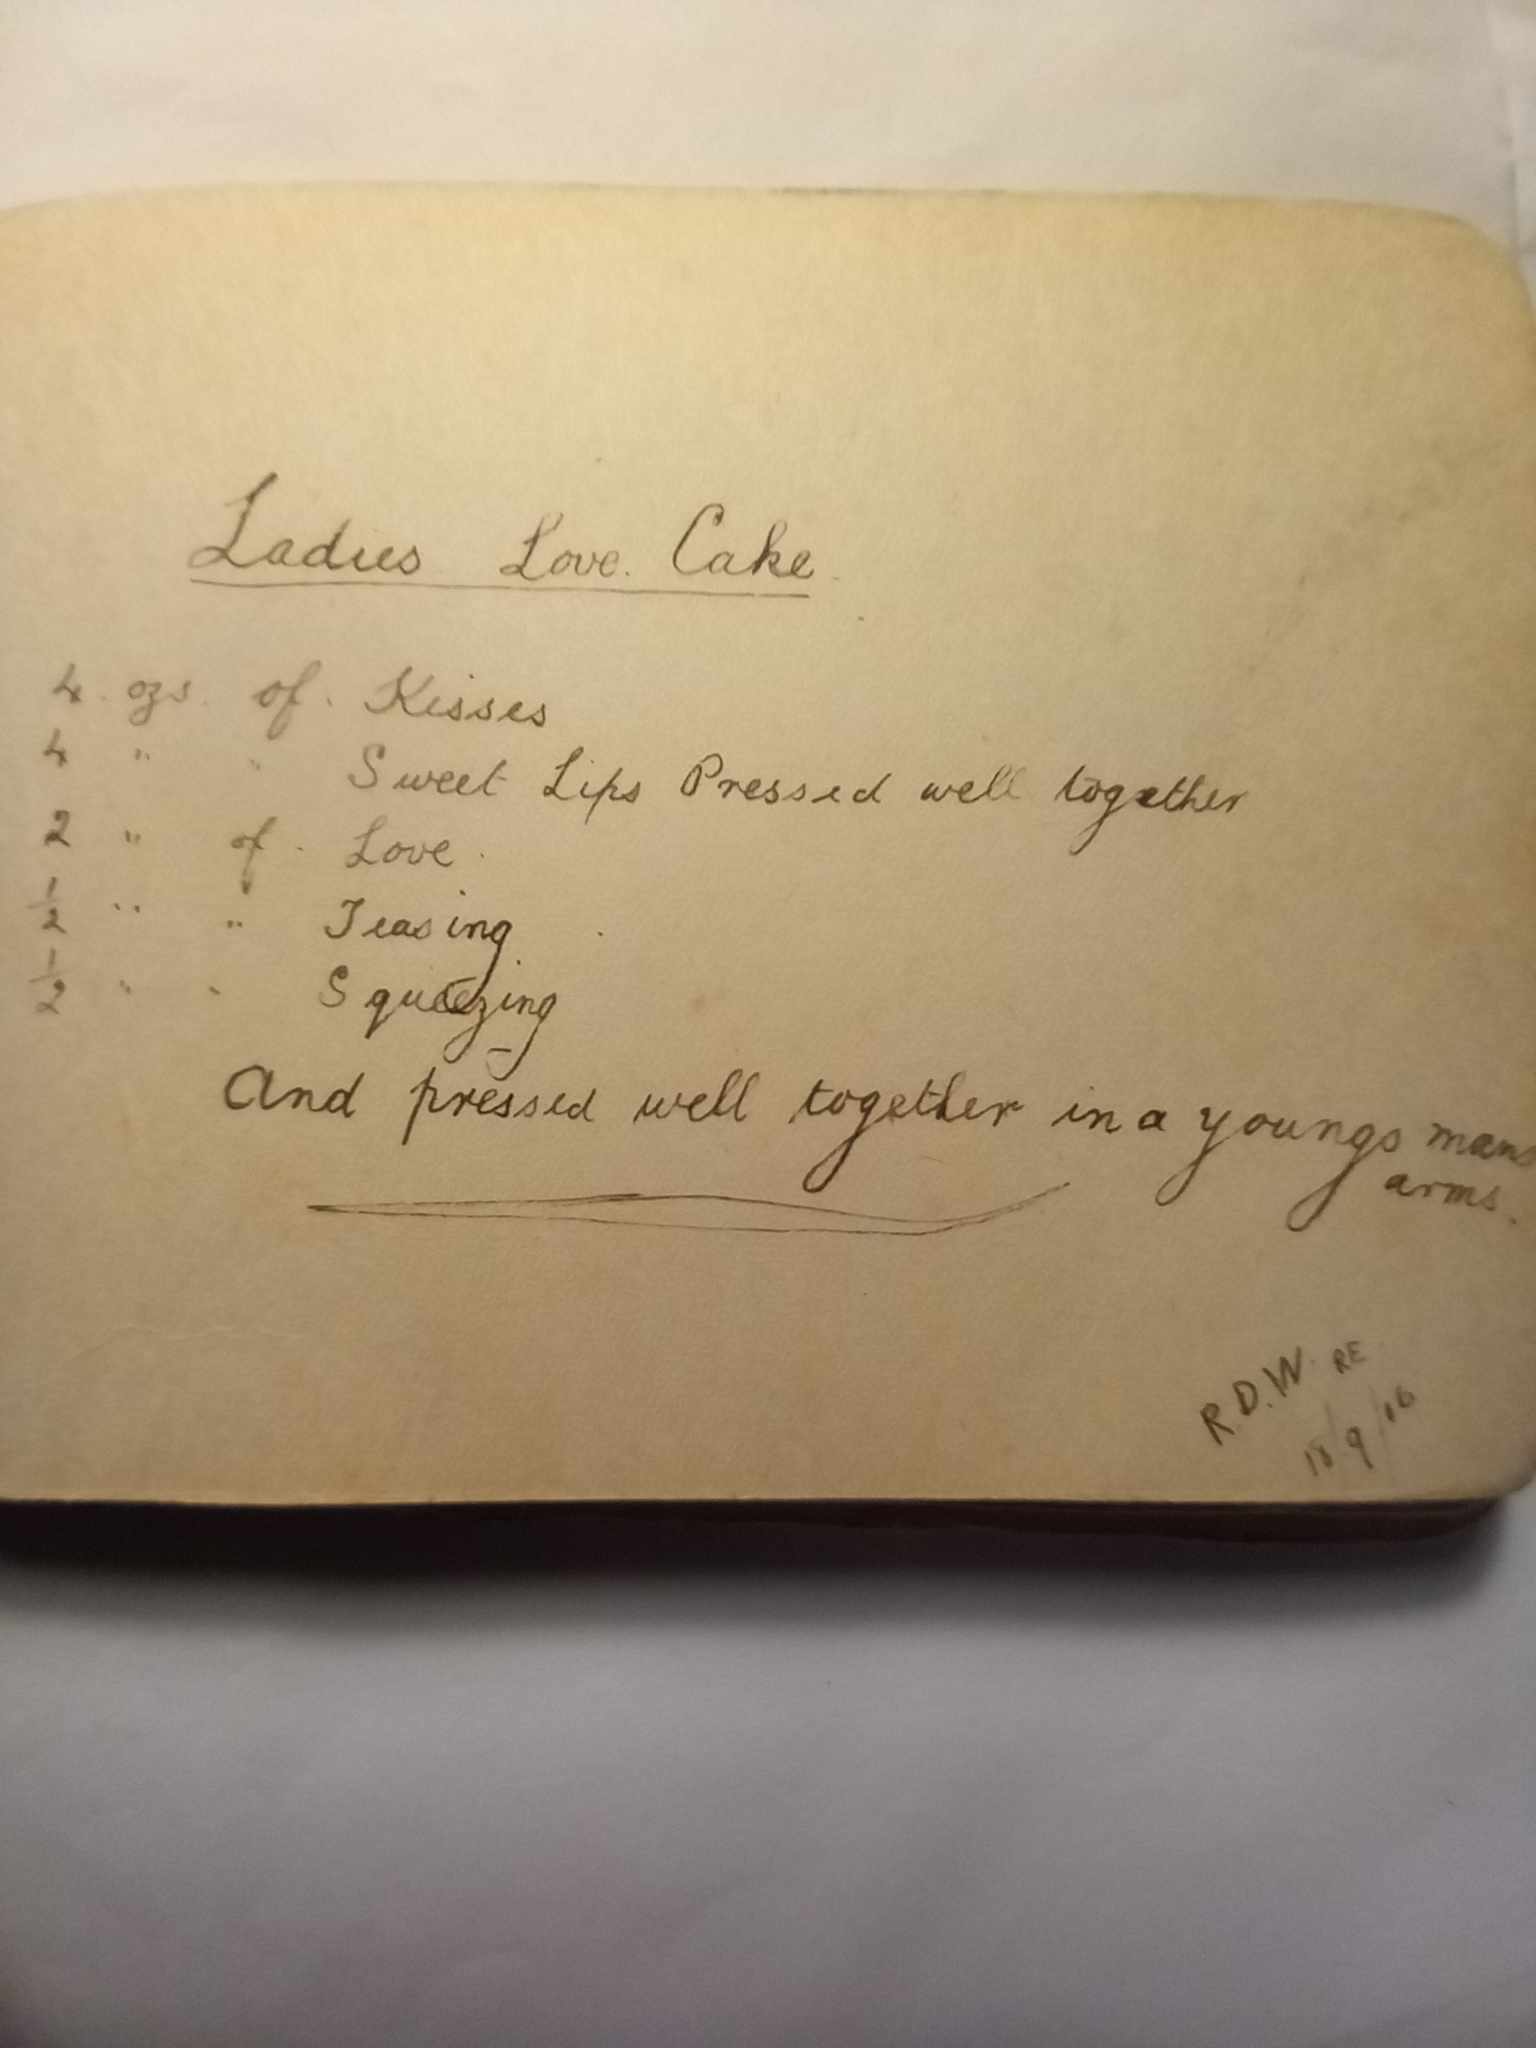 Ladies Love. Cake.
4 ozs. of. Kisses
4 " " Sweet Lips Pressed well together
2 " of. Love.
½ " " Teasing
½ " " Squeezing
And pressed well together in a youngs mans
arms.
R.D.W. RE
18/9/16